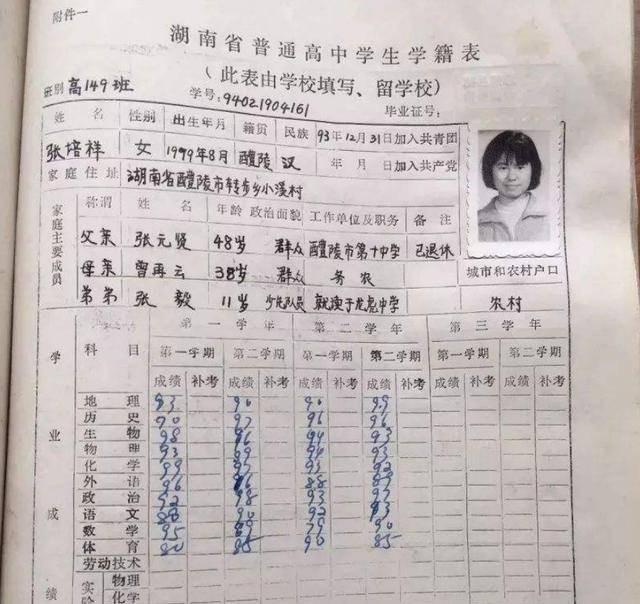 附件一
湖南省普通高中学生学籍表
(此表由学校填写、留学校)
班别 高149班 学号:94021904161 毕业证号:
姓名 性别 出生年月 籍贯 民族 93年12月31日加入共青团
张培祥 女 1979年8月 醴陵 汉 年 月 日加入共产党
家庭住址 湖南省醴陵市转步乡小溪村
家庭主要成员 称谓 姓名 年龄 政治面貌 工作单位及职务 备注
父亲 张元贤 48岁 群众 醴陵市第十中学 已退休
母亲 曾再云 38岁 群众 务农 城市和农村户口
弟弟 张毅 11岁 少先队员 就读于龙虎中学 农村
学业成绩 科目 第一学年 第二学年 第三学年
第一学期 第二学期 第一学期 第二学期 第一学期 第二学期
成绩 补考 成绩 补考 成绩 补考 成绩 补考 成绩 补考 成绩 补考
地理 93 90 90 99
历史 90 97 96 96
生物 98 96 94 93
物理 93 99 94 93
化学 99 97 93 92
外语 96 96 88 89
政治 92 98 93 97
语文 90 92 93
数学 95 79 90
体育 80 85 90 85
劳动技术
实 物理
化学